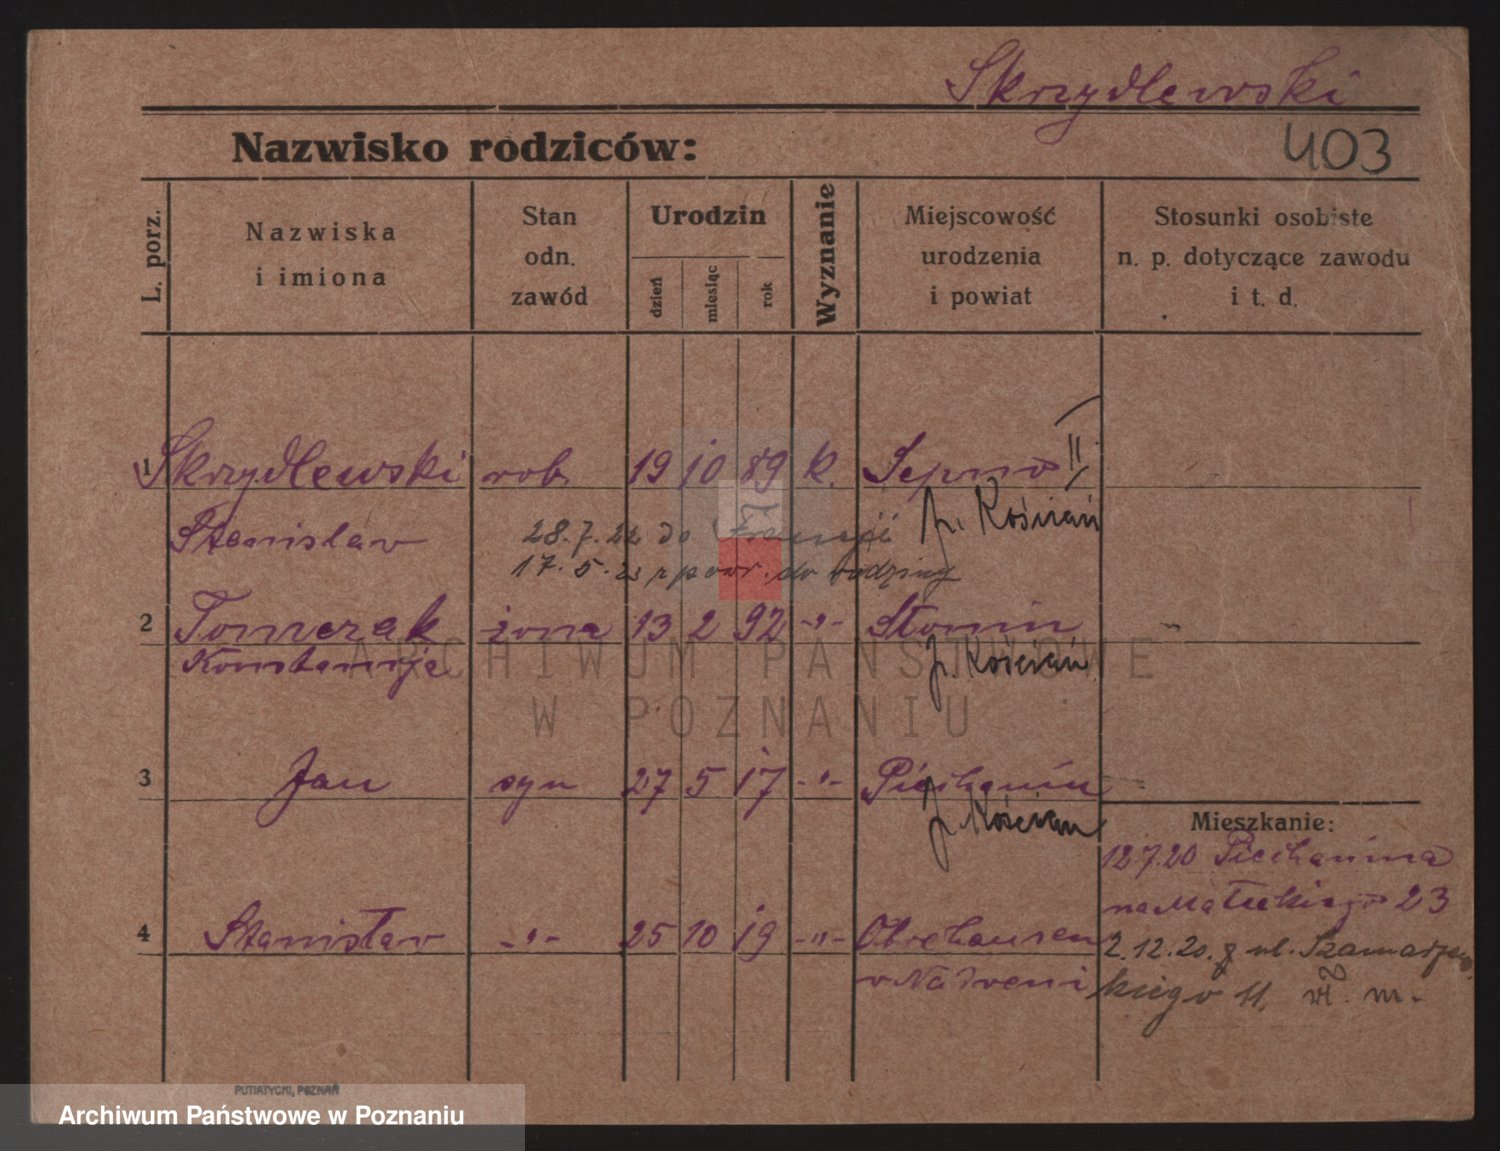 Skrzydlewski
Nazwisko rodziców:
403
L. porz.
Nazwiska
i imiona
Stan
odn.
zawód
Urodzin
dzień
miesiąc
rok
Wyznanie
Miejscowość
urodzenia
i powiat
Stosunki osobiste
n. p. dotyczące zawodu
i t. d.
1 Skrzydlewski rob 19 10 89 k. Sepno II
Stanislaw p. Kościan
28.7.22 do Francji
17.5.23 powr. do rodziny
2 Tomczak żona 13 2 92 -"- Słonin
Konstancja p. Kościan
3 Jan syn 27 5 17 -"- Piechanin
p. Kościan
Mieszkanie:
12.7.20 Piechanina
na Małeckiego 23
4 Stanisław -"- 25 10 19 -"-
2.12.20. ul. Szamarzew
kiego 11. m.
PUTIATYCKI, POZNAŃ
ARCHIWUM PAŃSTWOWE
W POZNANIU
Archiwum Państwowe w Poznaniu